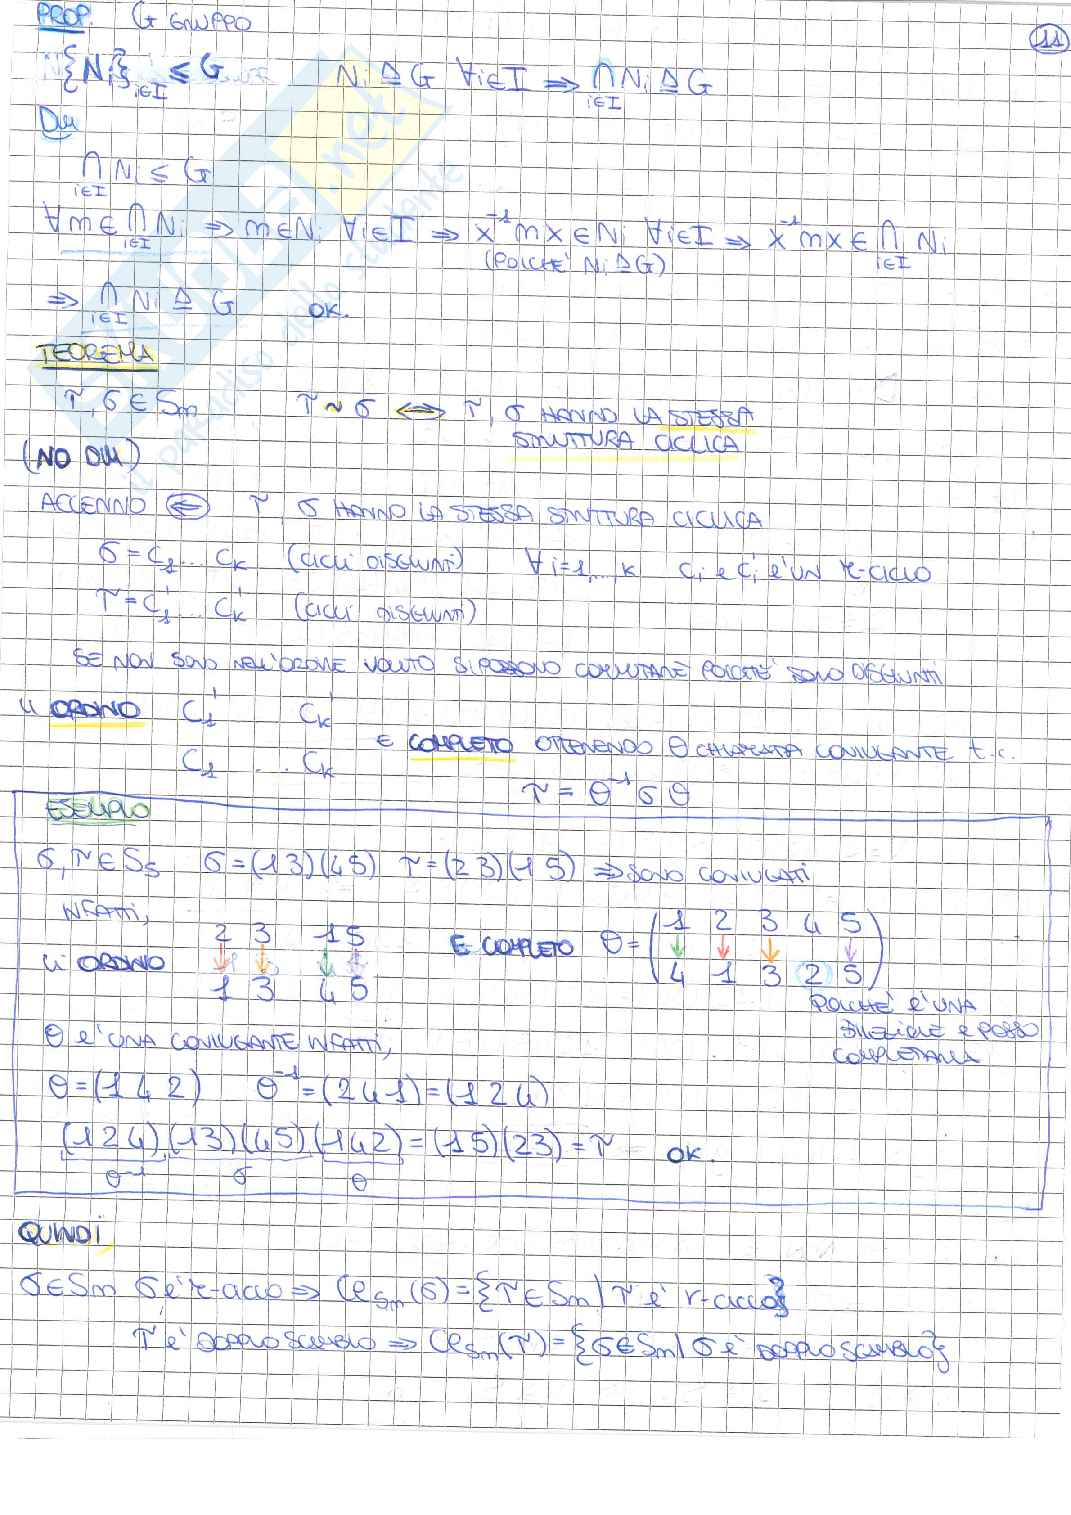 PROP. G GRUPPO
11
{Ni}i∈I ≤ G Ni ⊴ G ∀i∈I ⇒ ∩i∈I Ni ⊴ G
DIM
∩i∈I Ni ≤ G
∀m∈∩i∈I Ni ⇒ m∈Ni ∀i∈I ⇒ x⁻¹mx∈Ni ∀i∈I ⇒ x⁻¹mx∈∩i∈I Ni
(POICHE' Ni ⊴ G)
⇒ ∩i∈I Ni ⊴ G OK.
TEOREMA
τ, σ ∈ Sm τ ~ σ ⇔ τ, σ HANNO LA STESSA
STRUTTURA CICLICA
(NO DIM)
ACCENNO ⇐ τ, σ HANNO LA STESSA STRUTTURA CICLICA
σ = C1... Ck (CICLI DISGIUNTI) ∀i=1,...,k Ci e Ci' E' UN r-CICLO
τ = C1'... Ck' (CICLI DISGIUNTI)
SE NON SONO NELL'ORDINE VOLUTO SI POSSONO COMMUTARE POICHE' SONO DISGIUNTI
LI ORDINO C1' Ck'
E COMPLETO OTTENENDO θ CHIAMATA CONIUGANTE t.c.
C1 ... Ck
τ = θ⁻¹σθ
ESEMPIO
σ, τ ∈ S5 σ = (13)(45) τ = (23)(15) ⇒ SONO CONIUGATI
INFATTI,
2 3 1 5
1 2 3 4 5
LI ORDINO ↓ ↓ ↓ ↓ E COMPLETO θ = ( ↓ ↓ ↓ ↓ )
1 3 4 5
4 1 3 2 5
POICHE' E' UNA
BIEZIONE E POSSO
COMPLETARLA
θ E' UNA CONIUGANTE INFATTI,
θ = (1 4 2) θ⁻¹ = (2 4 1) = (1 2 4)
(1 2 4)(13)(45)(142) = (15)(23) = τ OK.
θ⁻¹ σ θ
QUINDI
σ∈Sm σ è r-ciclo ⇒ ClSm(σ) = {τ∈Sm | τ è r-ciclo}
τ è DOPPIO SCAMBIO ⇒ ClSm(τ) = {σ∈Sm | σ è DOPPIO SCAMBIO}
.net
il paradiso dello studente